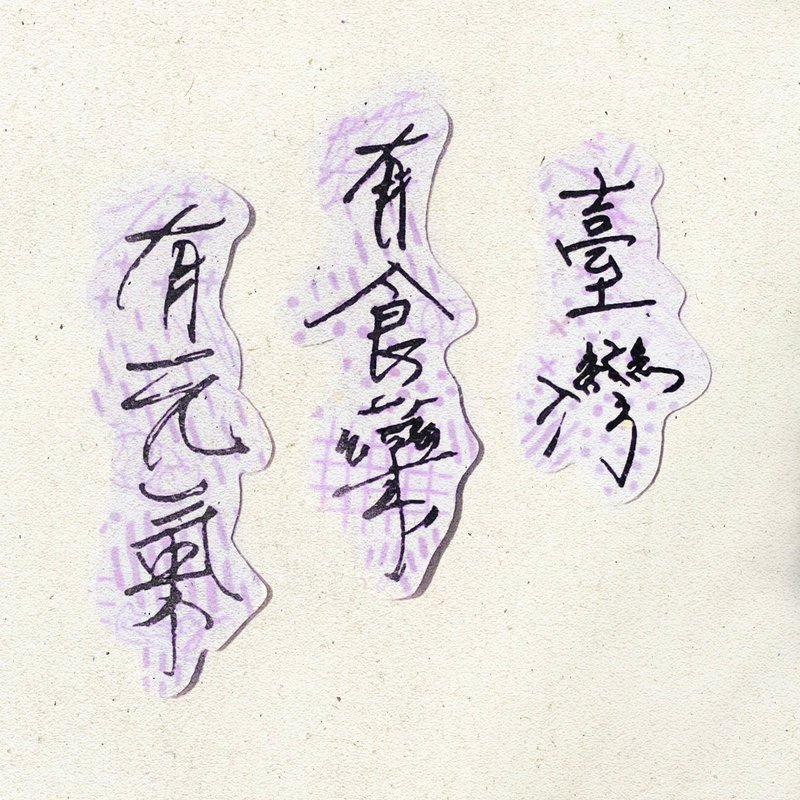 臺灣
有食藥
有元氣